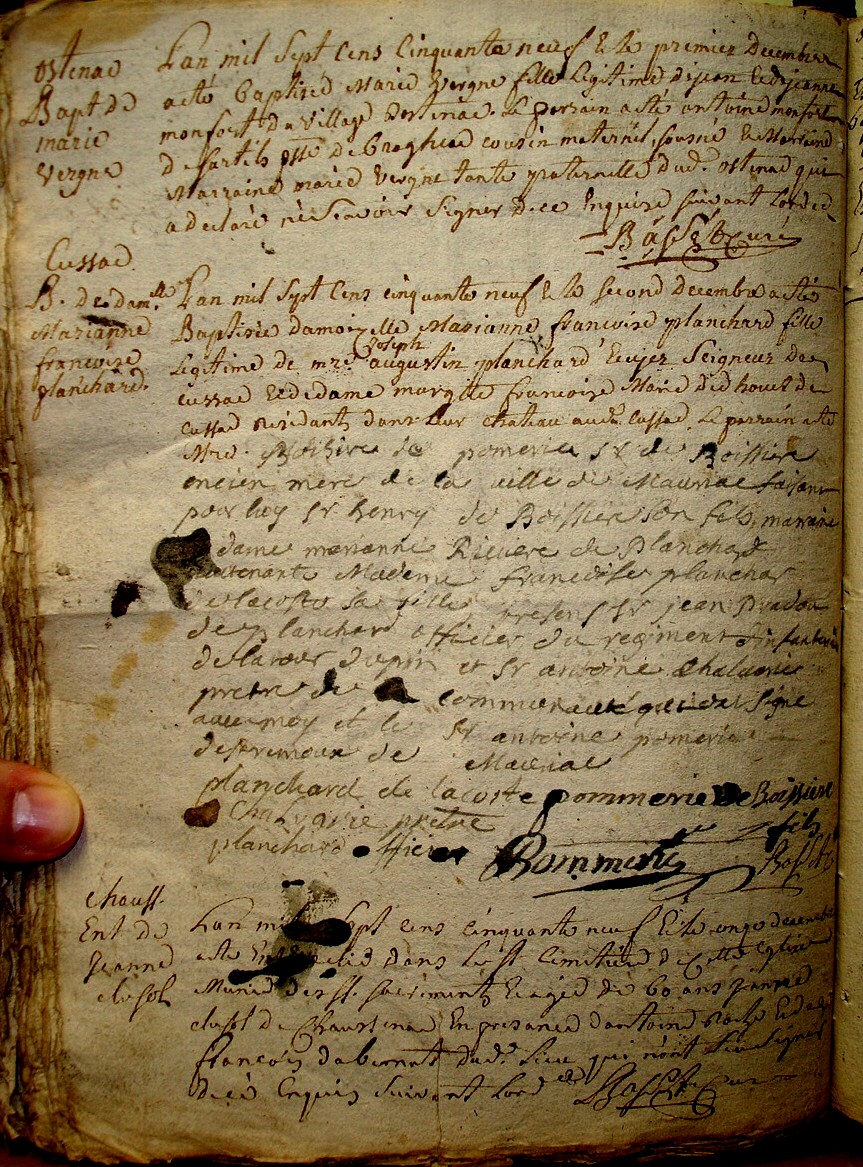 ostenac
Bapt de
marie
vergne
Lan mil sept cens cinquante neuf & le premier decembre
a eté baptisée Marie vergne fille legitime de jean et de jeanne
monfort du village dostenac. Le parrain a eté antoine monfort
de cousin maternel, soussné
Marraine marie vergne tante paternelle dud. ostenac qui
a declaré ne scavoir signer de ce enquise suivant lord
Basset Curé
Cussac
B. de dam.lle
Marianne
francoise
planchard.
Lan mil sept cens cinquante neuf & le second decembre a eté
Baptisée damoizelle Marianne francoise planchard fille
legitime de mre. joseph augustin planchard Ecuyer Seigneur de
cussac et de dame margtte francoise Marie de
cussac residants dans leur chateau aud. Cussac. Le parrain a eté
Mre. de pomerie sr de Boissiere
encien mere de la ville de Mauriac faisant
pour luy sr henry de Boissiere son fels, marraine
dame marianne Riviere de planchard
Mademe francoise planchar
de lacoste sa fille presens sr jean
de planchard officier du regiment dinfanterie
de latour dupin et sr antoine chalvarie
pretre de communauté qui ont signé
avec moy et le sr antoine pomerie
de Mauriac
planchard de lacoste pommerie de Boissiere
fils
pretre
planchard officier Pommerie Basset
chauss.
Ent de
Jeanne
clusol
Lan mil sept cens cinquante neuf & le onze decembre
a eté dans le st Cimetiere de cette Eglise
Munie des sts. sacrements et agée de 60 ans jeanne
clusol de Chaussenac En presence dantoine et de
francois dabernat dud. lieu qui nont scu signer
de ce Enquis suivant lord Basset Curé